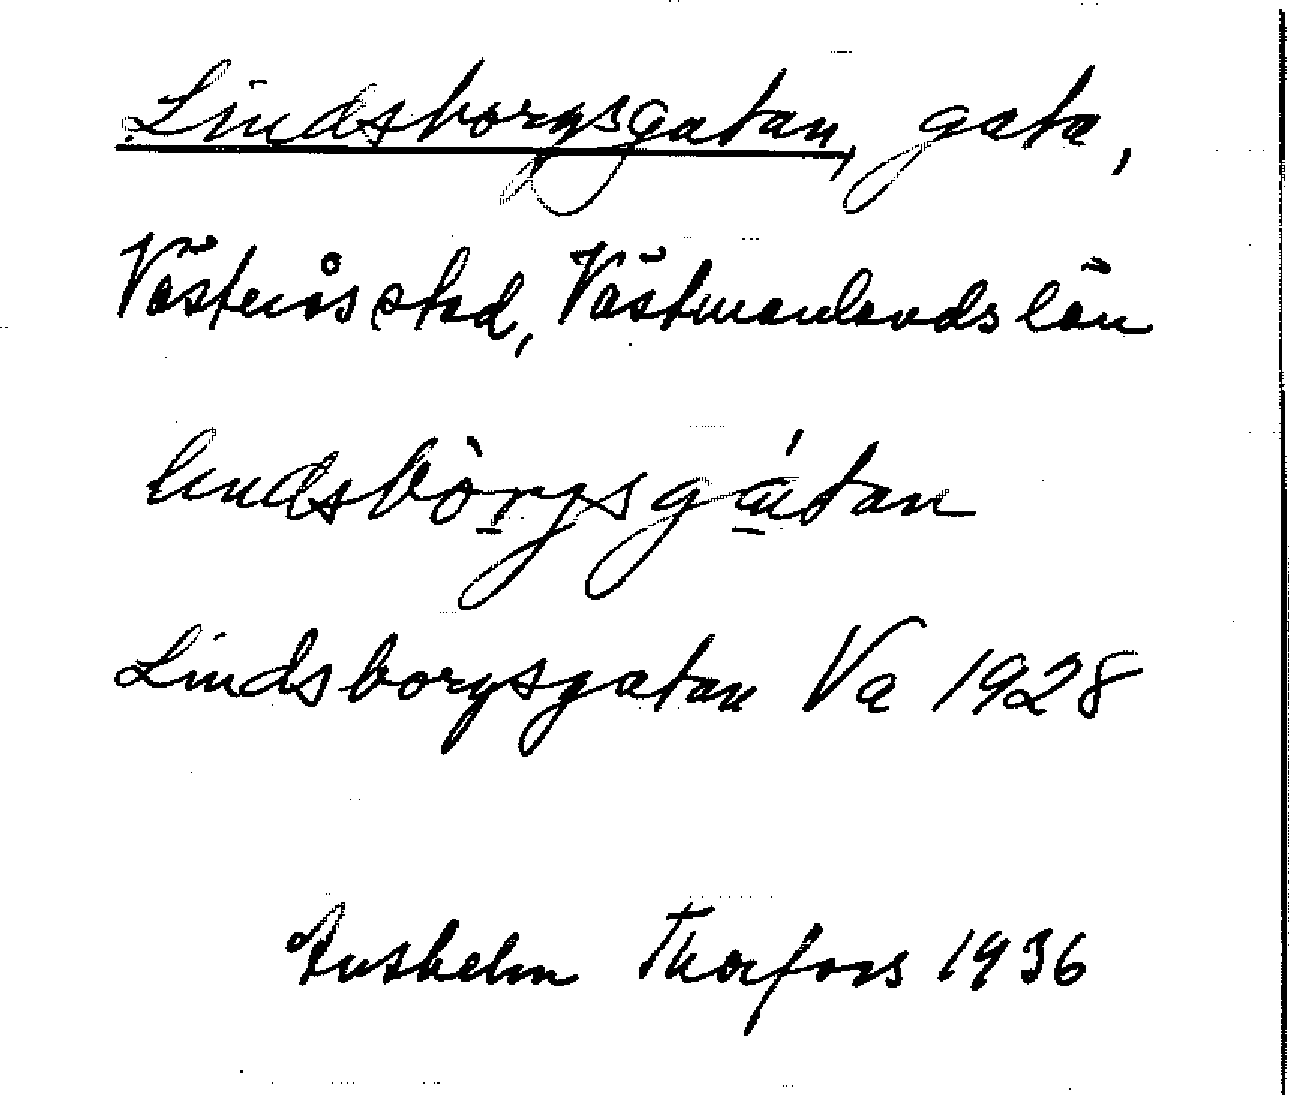 Lindsborgsgatan, gata,
Västerås stad, Västmanlands län
lindsbòrjsgátan
Lindsborgsgatan Va 1928
Anshelm Thorfors 1936